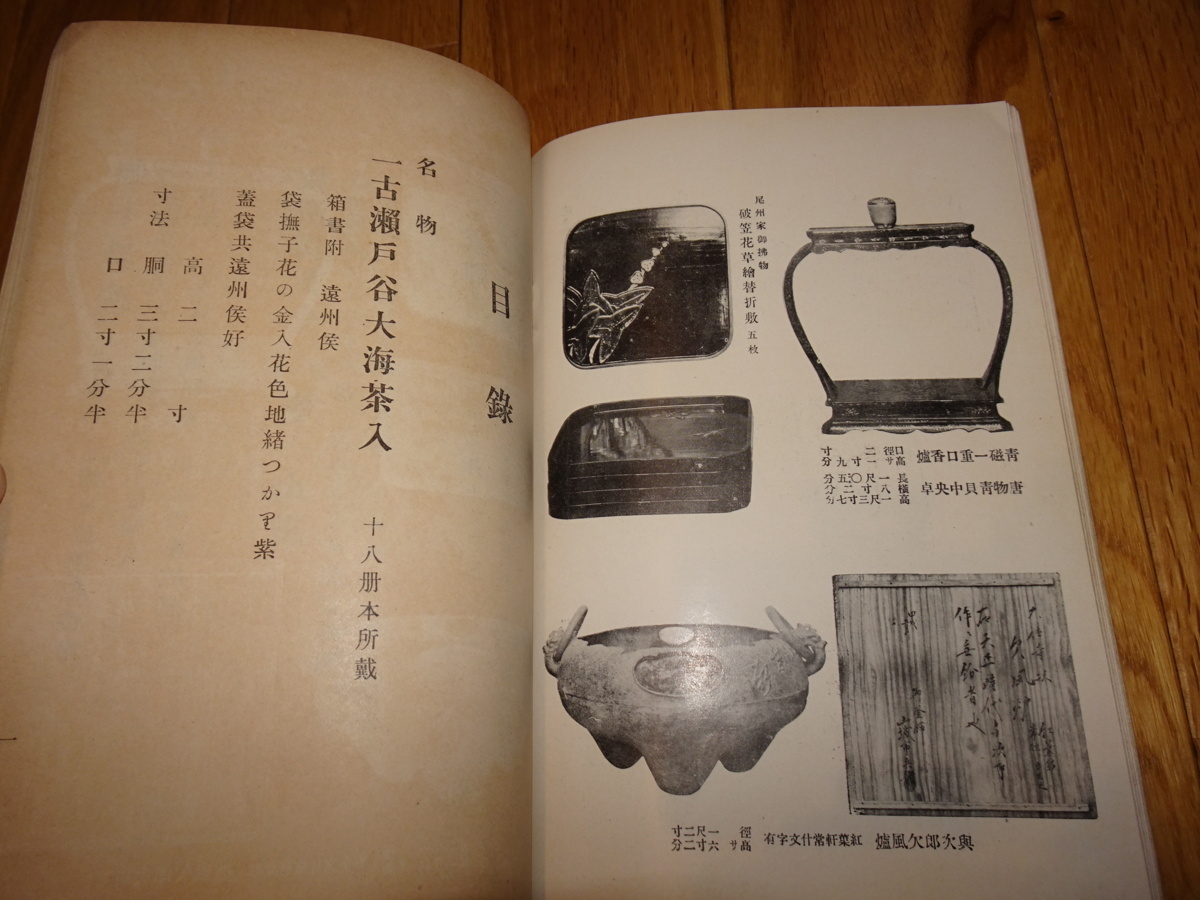 青磁一重口香爐 口徑 二寸
高サ 一寸九分
唐物青貝中央卓 長 一尺〇五分
横 八寸二分
高 一尺三寸七分
尾州家御拂物
破笠花草繪替折敷 五枚
與次郎欠風爐 紅葉軒常什文字有 徑 一尺二寸
高サ 六寸二分
目錄
名物
一古瀨戸谷大海茶入 十八册本所戴
箱書附 遠州侯
袋撫子花の金入花色地緒つかり紫
蓋袋共遠州侯好
高 二寸
寸法 胴 三寸二分半
口 二寸一分半
一